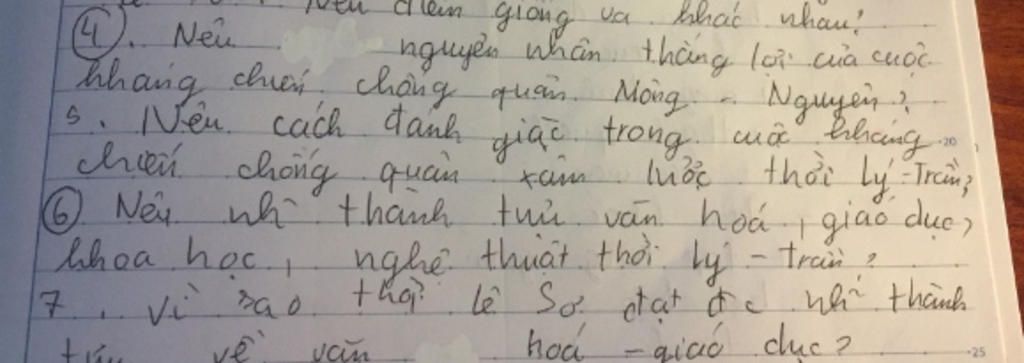 Nêu điểm giống và khác nhau?
4. Nêu nguyên nhân thắng lợi của cuộc
kháng chiến chống quân Mông - Nguyên?
5. Nêu cách đánh giặc trong cuộc kháng
chiến chống quân xâm lược thời Lý - Trần?
6 Nêu nh~ thành tựu văn hoá, giáo dục,
khoa học, nghệ thuật thời Lý - Trần?
7. Vì sao thời Lê Sơ đạt đc nh~ thành
tựu về văn hoá - giáo dục?